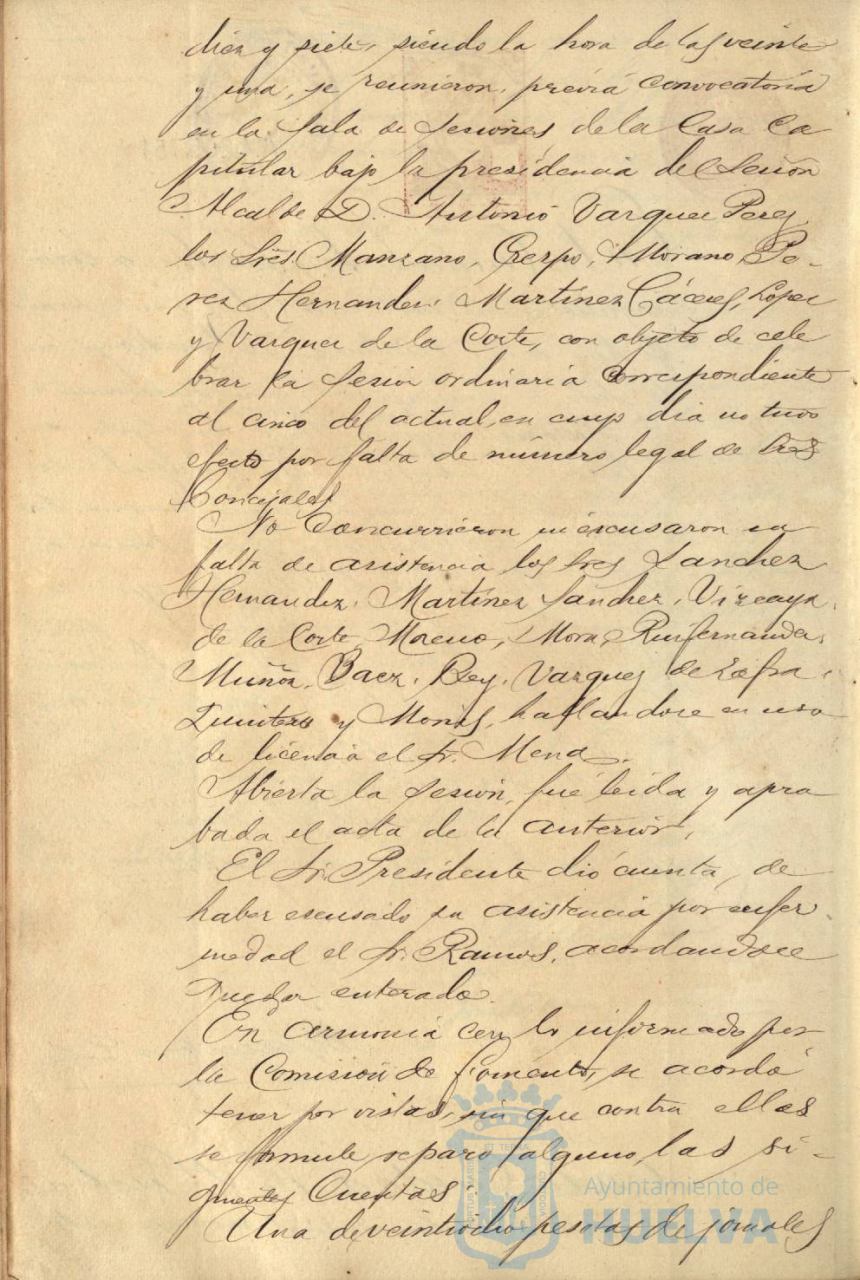 diez y siete, siendo la hora de las veinte
y una, se reunieron, previa convocatoria
en la Sala de Sesiones de la Casa Ca
pitular bajo la presidencia del Señor
Alcalde D. Antonio Vazquez Perez,
los Sres Manzano, Crespo, Morano, Pe-
rez Hernandez, Martinez Cáceres, Lopez
y Vazquez de la Corte, con objeto de cele
brar la sesion ordinaria correspondiente
al cinco del actual, en cuyo dia no tuvo
efecto por falta de número legal de Sres
Concejales
No concurrieron, ni escusaron su
falta de asistencia los Sres Sanchez
Hernandez, Martinez Sanchez, Vizcaya,
de la Corte, Moreno, Mora, Ruifernandez,
Muñoz, Baez, Rey, Vazquez de Zafra,
Quintero y Monis, hallandose en uso
de licencia el Sr. Mena.
Abierta la sesion, fué leida y apro
bada el acta de la anterior,
El Sr. Presidente dió cuenta, de
haber escusado su asistencia por enfer
medad el Sr. Ramos, acordandose
quedar enterado.
En armonia con lo informado por
la Comisión de fomento, se acordó
tener por vistas, sin que contra ellas
se formule reparo alguno, las si-
guientes Cuentas:
Una de veintiocho pesetas de jornales
Ayuntamiento de
HUELVA